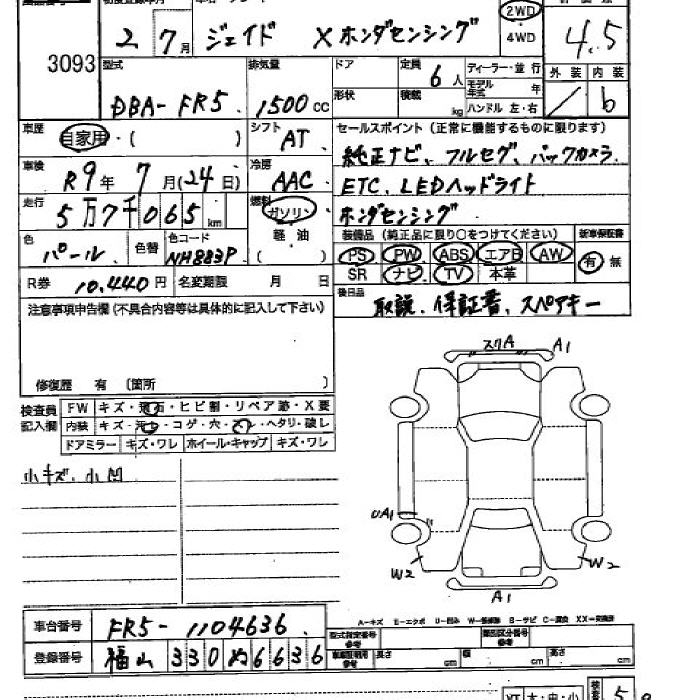 3093
2 7月 ジェイド Xホンダセンシング
2WD
4WD
4.5
型式 排気量 ドア 定員 6人 ディーラー・並行
外装 内装
DBA-FR5. 1500cc
形状 積載 kg モデル年式 年
ハンドル 左・右
/ b
車歴 自家用・( ) シフト AT
セールスポイント (正常に機能するものに限ります)
純正ナビ、フルセグ、バックカメラ.
車検 R9年 7月(24日) 冷房 AAC
ETC. LEDヘッドライト
走行 5万7千065km 燃料 ガソリン
軽・油
( )
ホンダセンシング
色 パール 色替 色コード NH883P
装備品 (純正品に限り○をつけてください) 新車保証書
PS PW ABS エアB AW 有 無
SR ナビ TV 本革
R券 10,440円 名変期限 月 日
後日品 取説、保証書、スペアキー
注意事項申告欄(不具合内容等は具体的に記入して下さい)
修復歴 有 (箇所 )
スリA A1
検査員記入欄
FW キズ・飛石・ヒビ割・リペア跡・X要
内装 キズ・汚れ・コゲ・穴・スレ・ヘタリ・破レ
ドアミラー キズ・ワレ ホイール・キャップ キズ・ワレ
小キズ、小凹
UA1
W2 W2
A1
A-キズ E-エクボ U-凹み
車台番号 FR5-1104636
登録番号 福山 330 ぬ 6636
型式指定番号 参考 類別区分番号 参考
参考 長さ cm 幅 cm 高さ cm
大・中・小
5